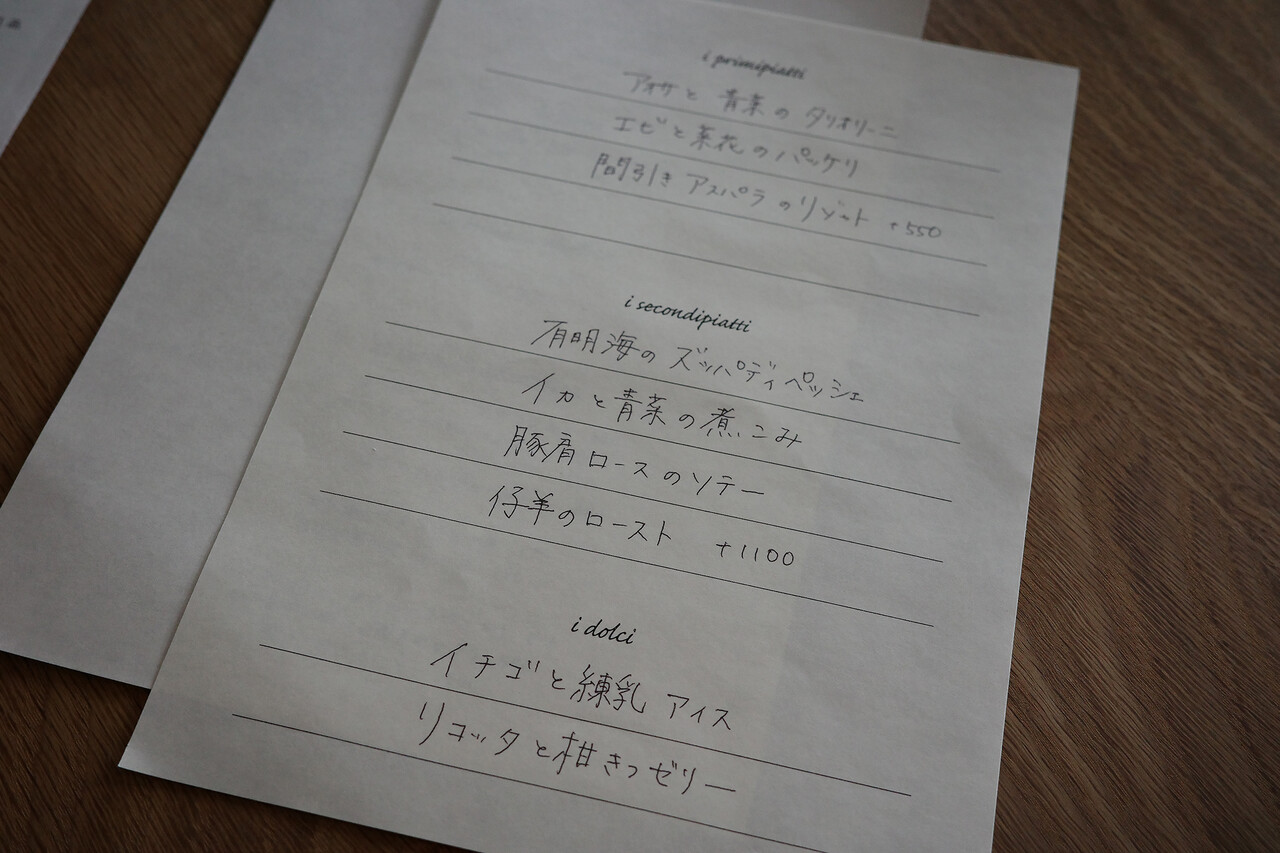 i primipiatti
アオサと青菜のタリオリーニ
エビと菜花のパッケリ
間引きアスパラのリゾット +550
i secondipiatti
有明海のズッパディペッシェ
イカと青菜の煮こみ
豚肩ロースのソテー
仔羊のロースト +1100
i dolci
イチゴと練乳アイス
リコッタと柑きつゼリー